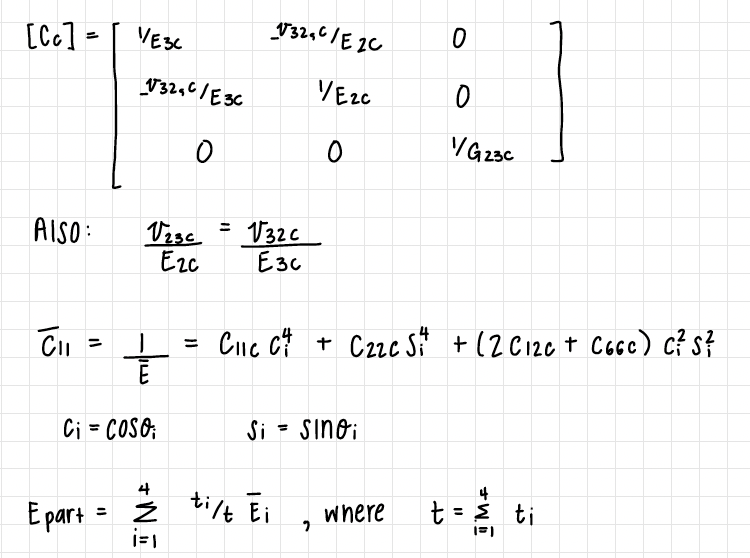 [Cc] = [ 1/E3c -ν32,c/E2c 0
-ν32,c/E3c 1/E2c 0
0 0 1/G23c ]
Also: ν23c/E2c = ν32c/E3c
C̅11 = 1/E̅ = C11c ci^4 + C22c si^4 + (2C12c + C66c) ci^2 si^2
ci = cosθi si = sinθi
Epart = Σ_{i=1}^{4} ti/t E̅i , where t = Σ_{i=1}^{4} ti